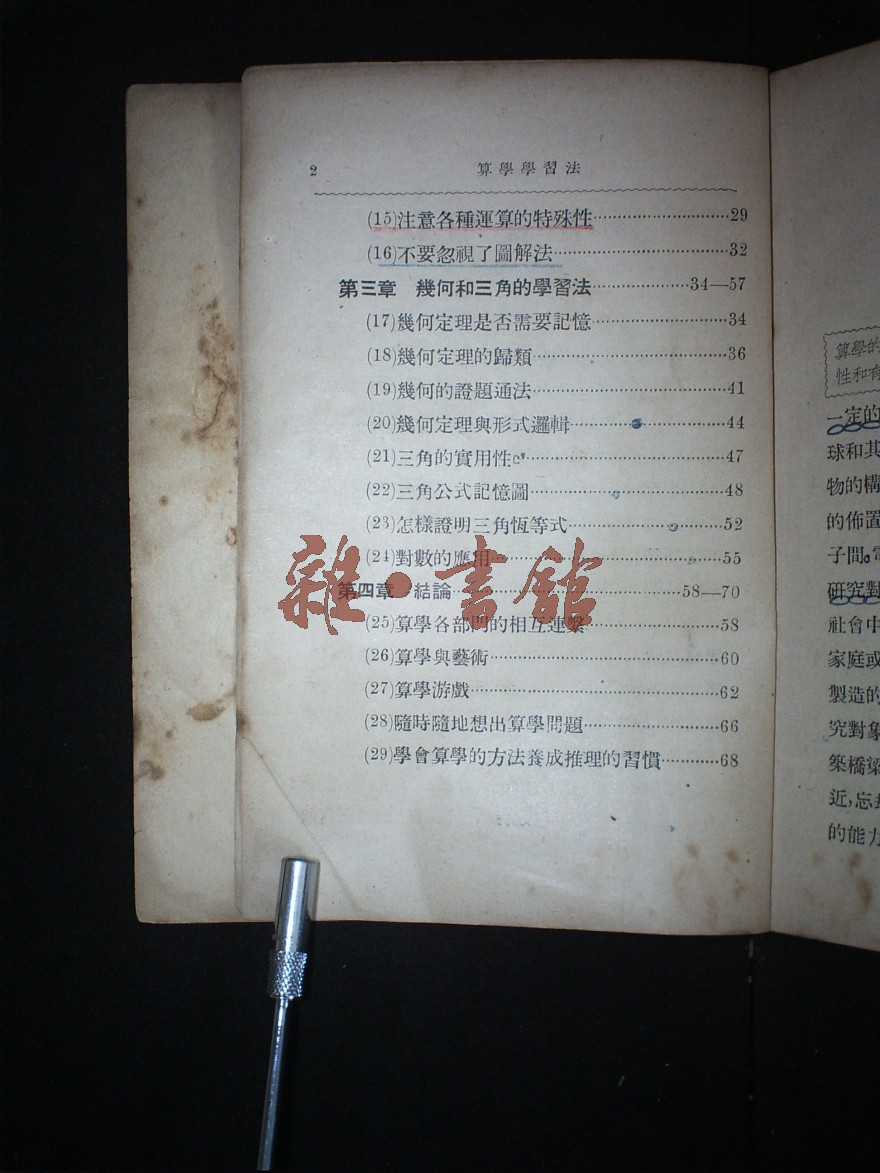 2 算學學習法
(15)注意各種運算的特殊性…………………………29
(16)不要忽視了圖解法…………………………32
第三章 幾何和三角的學習法…………………34—57
(17)幾何定理是否需要記憶…………………………34
(18)幾何定理的歸類…………………………36
(19)幾何的證題通法…………………………41
(20)幾何定理與形式邏輯…………………………44
(21)三角的實用性…………………………47
(22)三角公式記憶圖…………………………48
(23)怎樣證明三角恆等式…………………………52
(24)對數的應用…………………………55
第四章 結論…………………………58—70
(25)算學各部門的相互連繫…………………………58
(26)算學與藝術…………………………60
(27)算學游戲…………………………62
(28)隨時隨地想出算學問題…………………………66
(29)學會算學的方法養成推理的習慣…………68
雜·書館
算學的
性和有
一定的
球和其
物的構
的佈置
子間。電
研究對
社會中
家庭或
製造的
究對象
築橋梁
近,忘
的能力